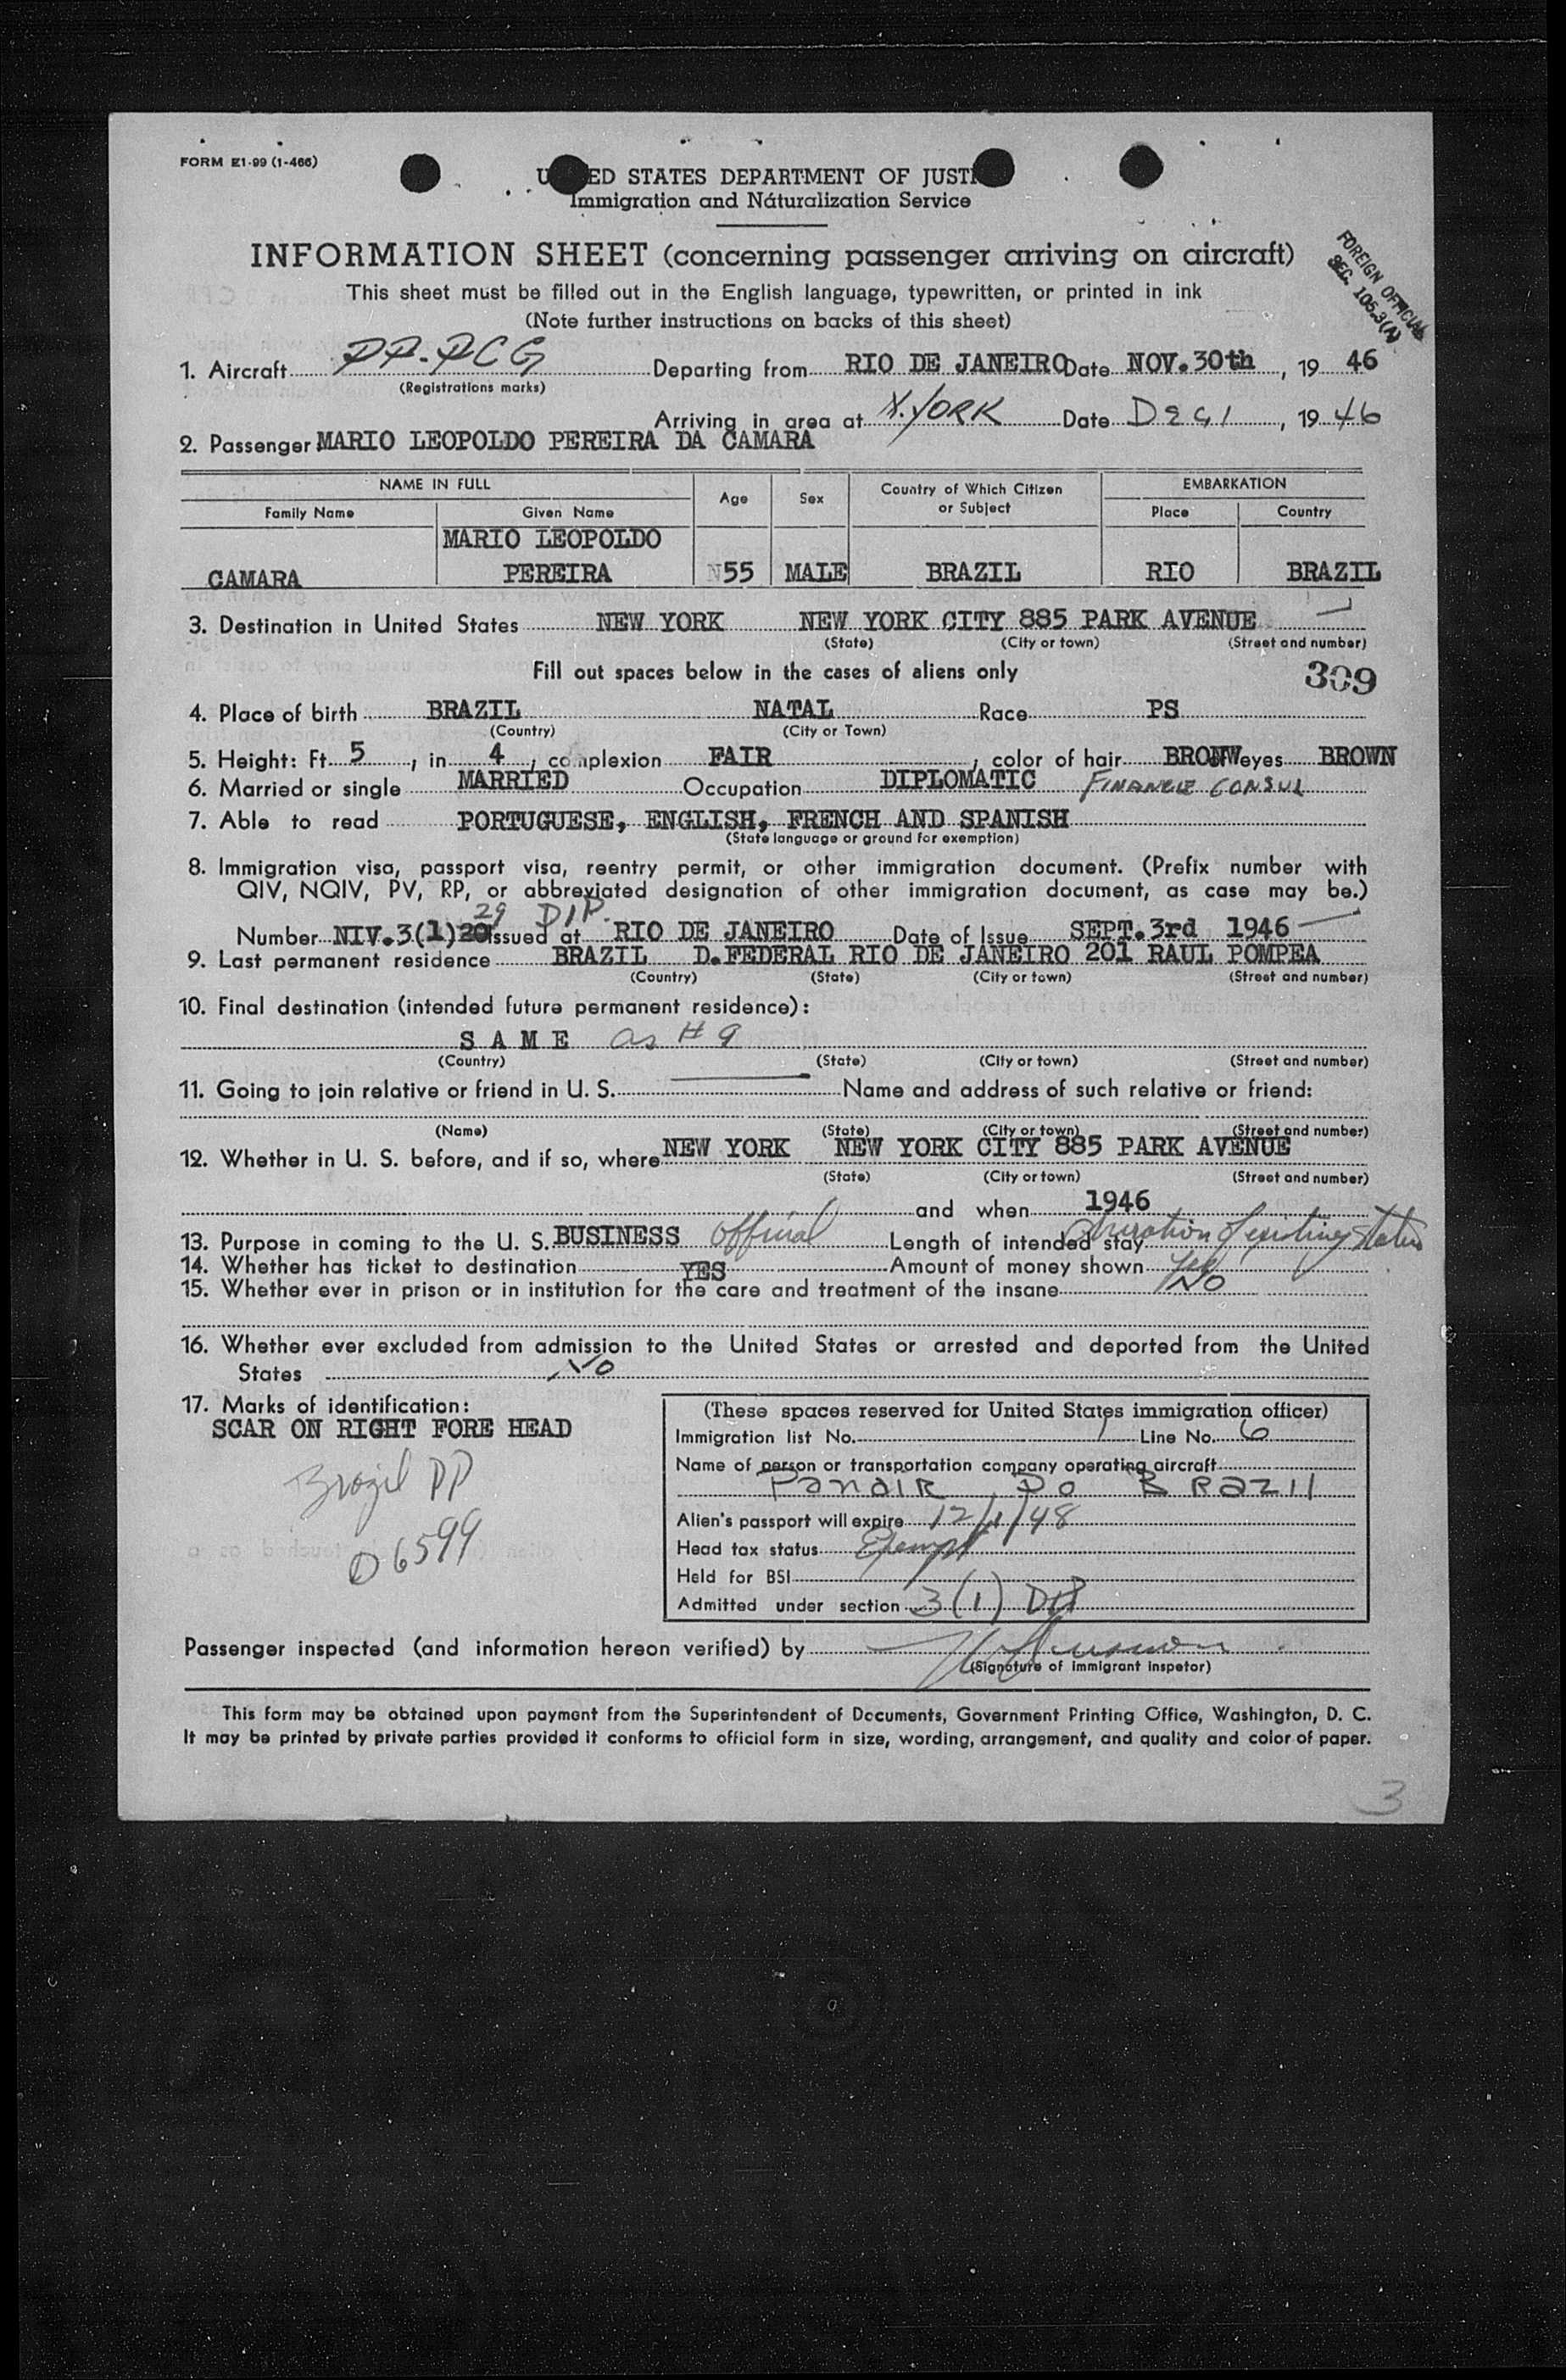 FORM E1-99 (1-466)
U ED STATES DEPARTMENT OF JUSTI
Immigration and Naturalization Service
INFORMATION SHEET (concerning passenger arriving on aircraft)
FOREIGN OFFICIAL
SEC. 105.3(A)
This sheet must be filled out in the English language, typewritten, or printed in ink
(Note further instructions on backs of this sheet)
1. Aircraft PP-PCG Departing from RIO DE JANEIRO Date NOV. 30th, 19 46
(Registrations marks)
Arriving in area at N. YORK Date Dec 1, 19 46
2. Passenger MARIO LEOPOLDO PEREIRA DA CAMARA
NAME IN FULL Age Sex Country of Which Citizen or Subject EMBARKATION
Family Name Given Name Place Country
MARIO LEOPOLDO
CAMARA PEREIRA 55 MALE BRAZIL RIO BRAZIL
3. Destination in United States NEW YORK NEW YORK CITY 885 PARK AVENUE
(State) (City or town) (Street and number)
Fill out spaces below in the cases of aliens only 309
4. Place of birth BRAZIL NATAL Race PS
(Country) (City or Town)
5. Height: Ft. 5, in 4, complexion FAIR, color of hair BRONW eyes BROWN
6. Married or single MARRIED Occupation DIPLOMATIC FINANCE CONSUL
7. Able to read PORTUGUESE, ENGLISH, FRENCH AND SPANISH
(State language or ground for exemption)
8. Immigration visa, passport visa, reentry permit, or other immigration document. (Prefix number with
QIV, NQIV, PV, RP, or abbreviated designation of other immigration document, as case may be.)
29 DIP.
Number NIV.3(1)20 issued at RIO DE JANEIRO Date of Issue SEPT. 3rd 1946
9. Last permanent residence BRAZIL D.FEDERAL RIO DE JANEIRO 201 RAUL POMPEA
(Country) (State) (City or town) (Street and number)
10. Final destination (intended future permanent residence):
S A M E as # 9
(Country) (State) (City or town) (Street and number)
11. Going to join relative or friend in U. S. Name and address of such relative or friend:
(Name) (State) (City or town) (Street and number)
12. Whether in U. S. before, and if so, where NEW YORK NEW YORK CITY 885 PARK AVENUE
(State) (City or town) (Street and number)
and when 1946
13. Purpose in coming to the U. S. BUSINESS official Length of intended stay duration of existing status
14. Whether has ticket to destination YES Amount of money shown yes
15. Whether ever in prison or in institution for the care and treatment of the insane No
16. Whether ever excluded from admission to the United States or arrested and deported from the United
States No
17. Marks of identification:
SCAR ON RIGHT FORE HEAD
Brazil PP
D 6599
(These spaces reserved for United States immigration officer)
Immigration list No. 1 Line No. 6
Name of person or transportation company operating aircraft
Panair Do Brazil
Alien's passport will expire 12/1/48
Head tax status Exempt
Held for BSI
Admitted under section 3(1) DIP
Passenger inspected (and information hereon verified) by
(Signature of immigrant inspetor)
This form may be obtained upon payment from the Superintendent of Documents, Government Printing Office, Washington, D. C.
It may be printed by private parties provided it conforms to official form in size, wording, arrangement, and quality and color of paper.
3